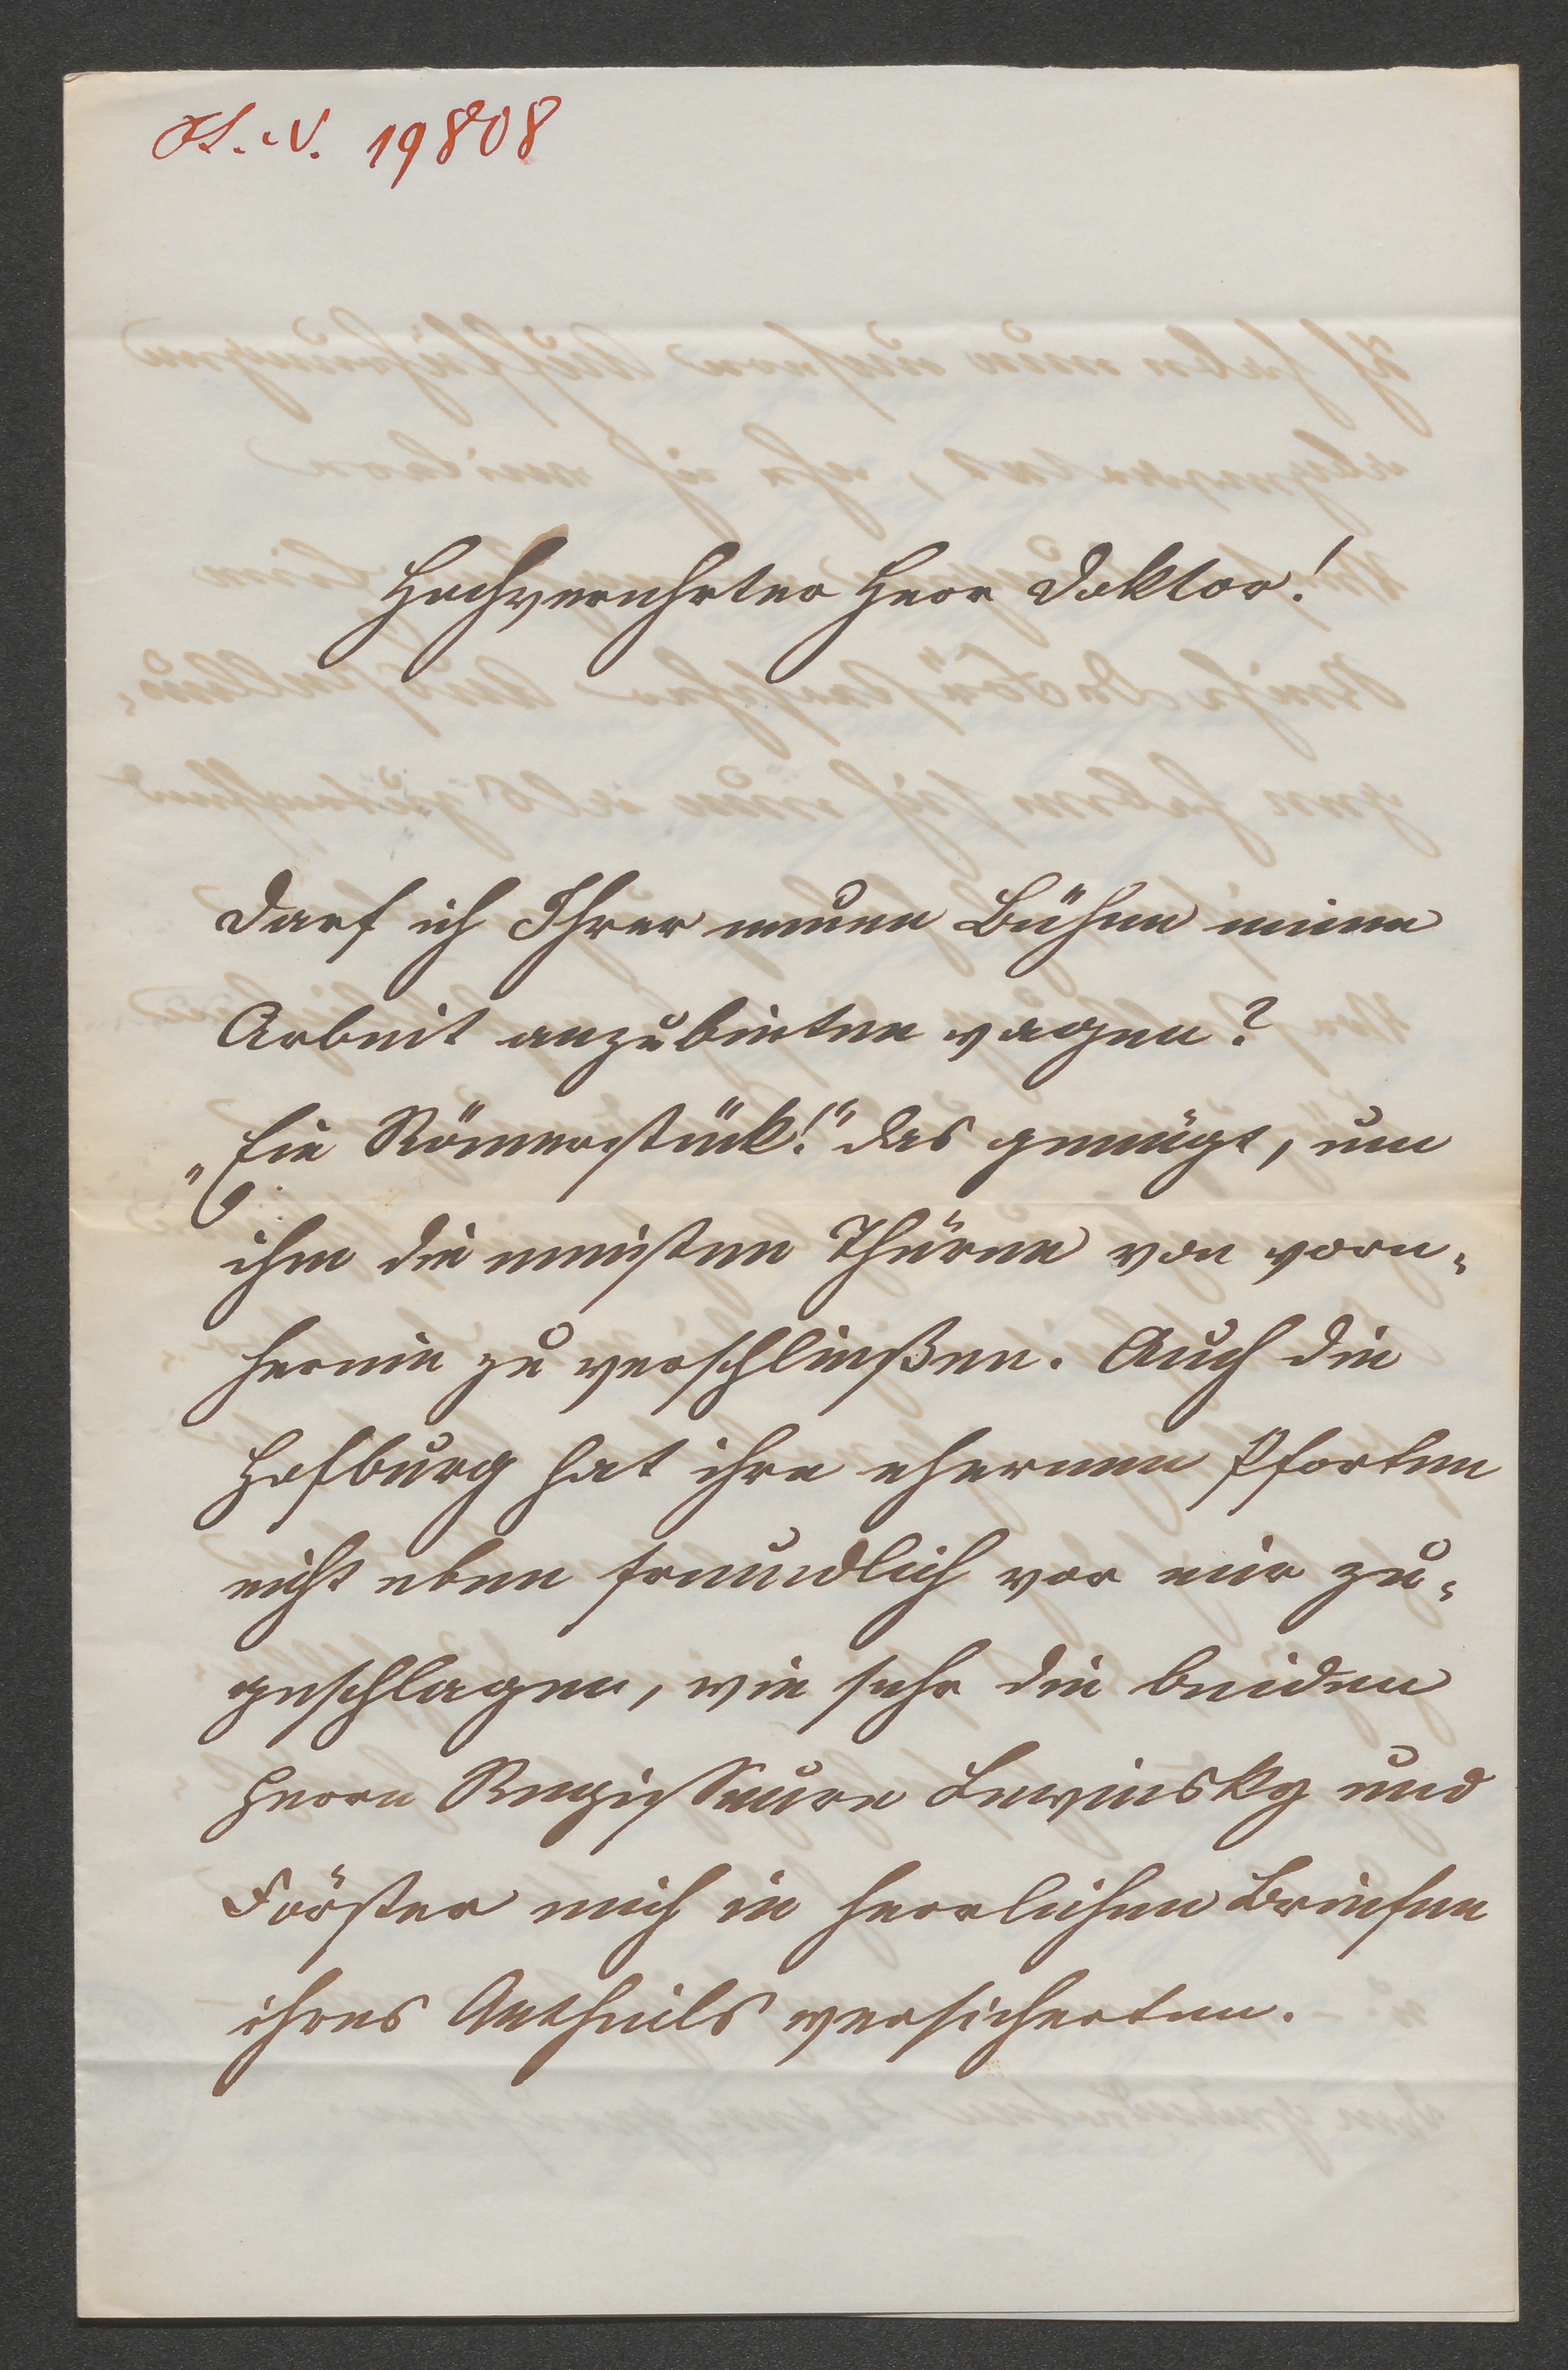 H. I. N. 19808
Hochverehrter Herr Doktor!
Darf ich Ihrer neuen Bühne meine
Arbeit anzubieten wagen?
„Ein Römerstück!“ das genügt, um
ihm die meisten Thüren von vorn-
herein zu verschließen. Auch die
Hofburg hat ihre ehernen Pforten
nicht eben freundlich vor mir zu-
geschlagen, wie sehr die beiden
Herrn Regisseure Lewinsky und
Förster mich in herrlichen Briefen
ihres Antheils versicherten.